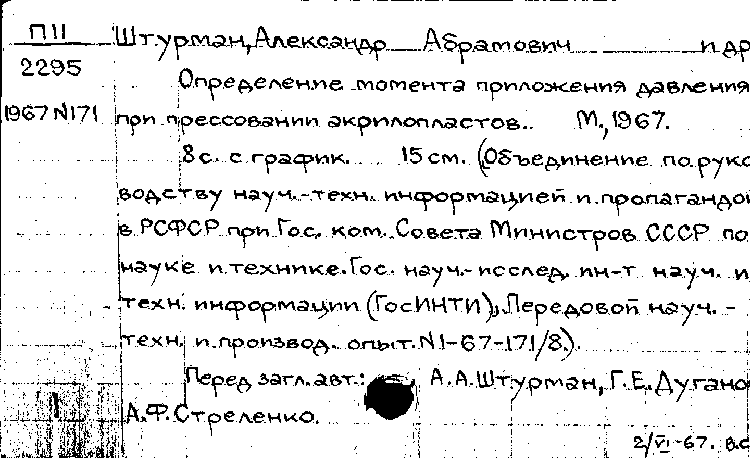 П11 Штурман, Александр Абрамович и др
2295
Определение момента приложения давления
1967 N171 при прессовании акрилопластов. М., 1967.
8 с. с график. 15 см. (Объединение по руко
водству науч.-техн. информацией и пропагандой
в РСФСР при Гос. ком. Совета Министров СССР по
науке и технике. Гос. науч.-исслед. ин-т науч. и
техн. информации (ГосИНТИ), Передовой науч. -
техн. и производ. опыт. N1-67-171/8).
Перед загл. авт.: А.А. Штурман, Г.Е. Дугано
А.Ф. Стреленко.
2/VI-67. в.с